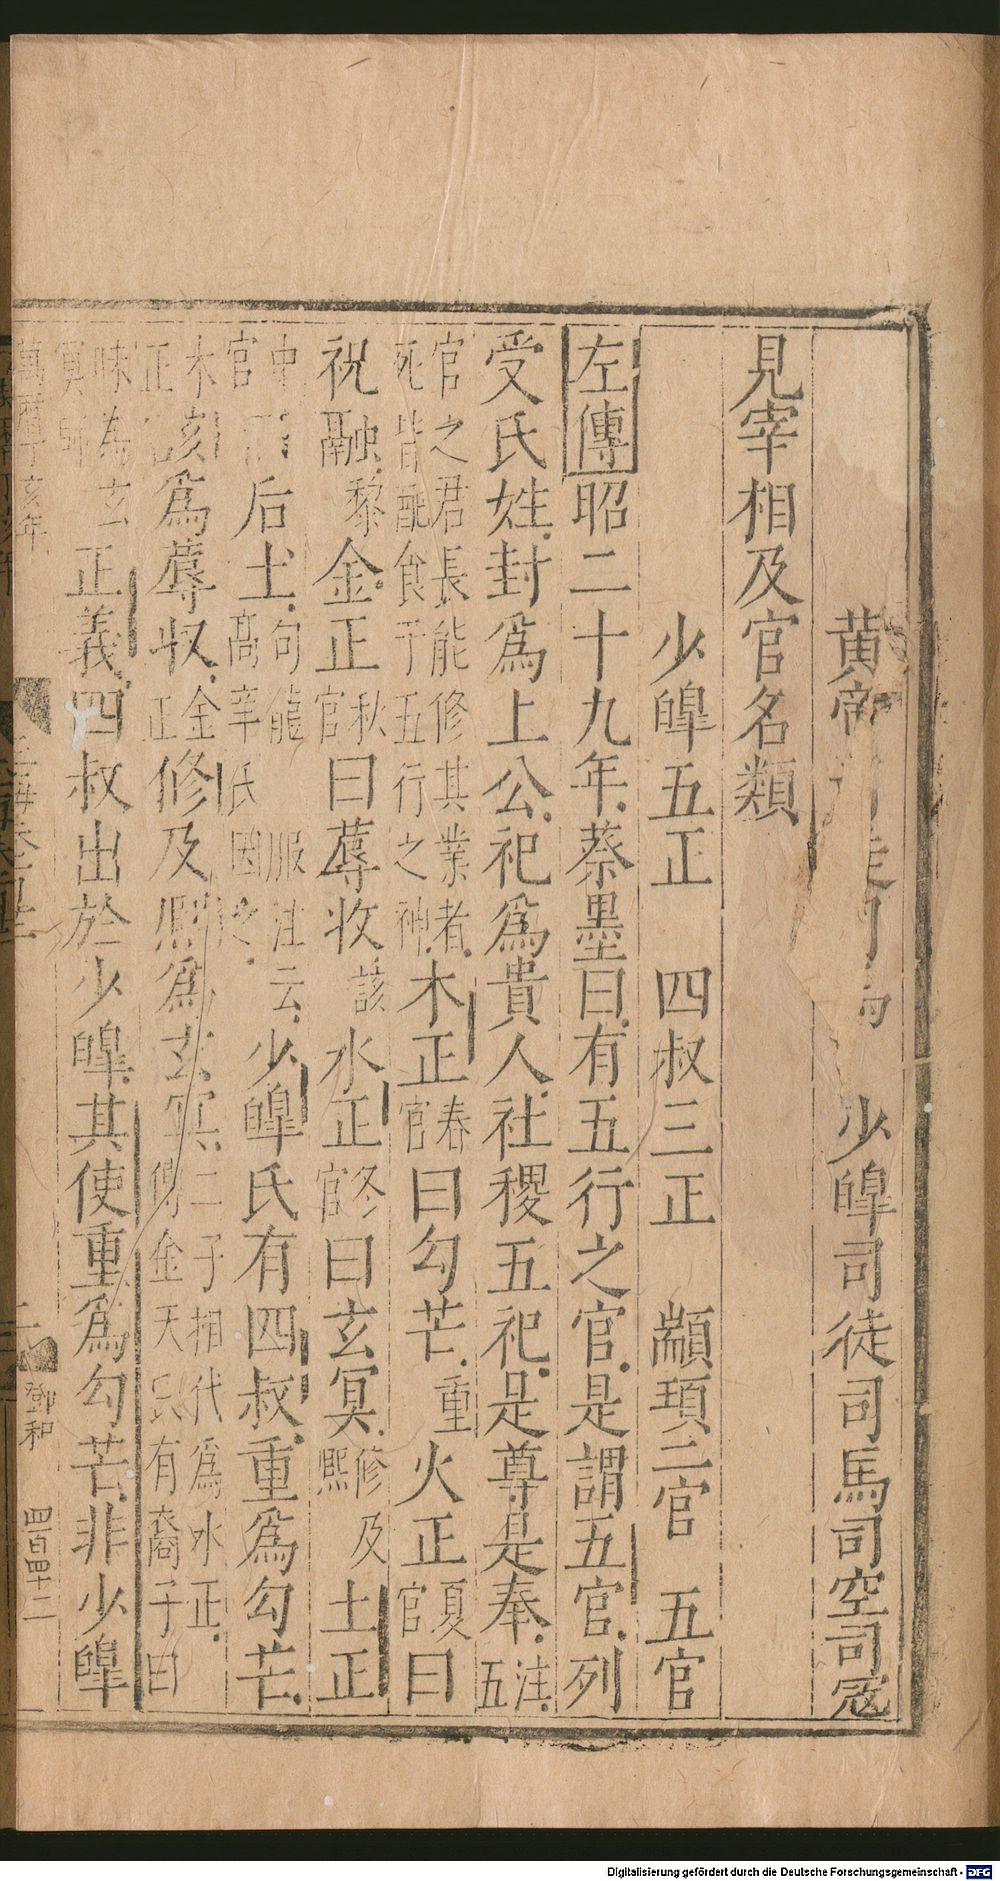 黄帝 少皥司徒司馬司空司冦
見宰相及官名類
少皥五正 四叔三正 顓頊二官 五官
左傳昭二十九年蔡墨曰有五行之官是謂五官列
受氏姓封爲上公祀爲貴人社稷五祀是尊是奉注五
官之君長能修其業者
死皆配食于五行之神
木正春官曰勾芒重火正夏官曰
祝融黎金正秋官曰蓐收該水正冬官曰玄冥修及熙土正
中官
后土句龍
高辛氏因之
服注云
少皥氏有四叔重爲勾芒
木該爲蓐収金正修及熈爲玄冥二子相代爲水正
傳金天氏有裔子曰
昧為玄冥師
正義四叔出於少皥其使重爲勾芒非少皥
萬曆丁亥年
二
鄧和
四百四十二
Digitalisierung gefördert durch die Deutsche Forschungsgemeinschaft - DFG